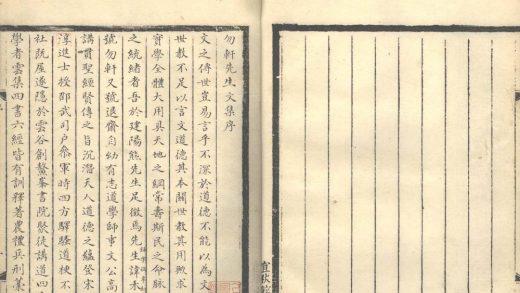 勿軒先生文集序
文之傳世豈易言乎不深於道德不能以為文
世教不足以言文道德其本關世教其用欤求
實學全體大用具天地之綱常壽斯民之命脉
之統緒者吾於建陽熊先生足徵焉先生諱禾
號勿軒又號退齋自幼有志道學師事文公高
講貫聖經賢傳之旨沉潛天人道德之蘊登宋
淳進士授邵武司戶參軍時四方騷騷道梗不
社既屋遂隱於雲谷創鰲峯書院聚徒講道四
學者雲集四書六經皆有訓釋著農禮兵刑蒙
宜秋